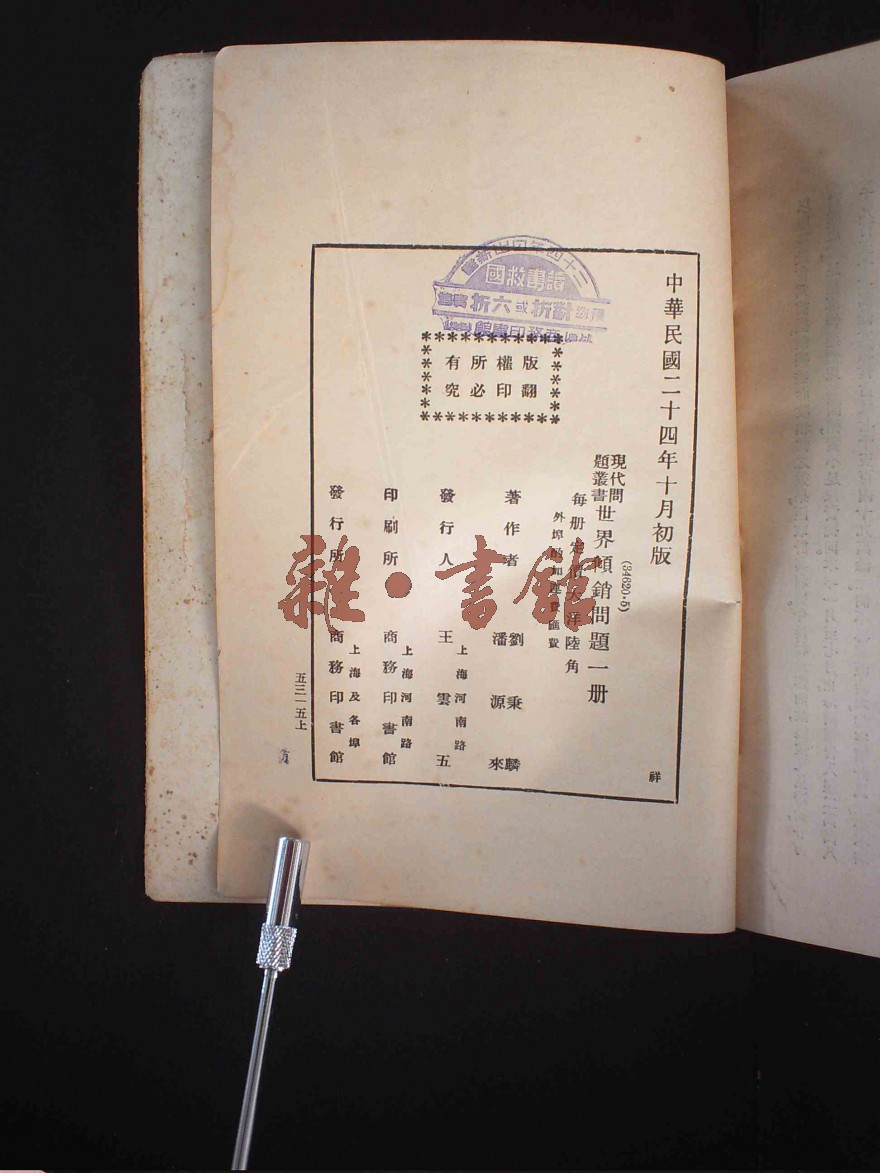 中華民國二十四年十月初版
(34620·5)
現代問題叢書
世界傾銷問題一册
每册定價大洋陸角
外埠酌加運費匯費
著作者
劉秉麟
潘源來
發行人
王雲五
上海河南路
印刷所
商務印書館
上海河南路
發行所
商務印書館
上海及各埠
版權所有
翻印必究
讀書救國
對折或六折
祥
五三一五上
雜·書館